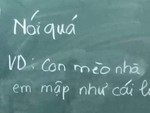 Nói quá
VD: Con mèo nhà
em mập như cái